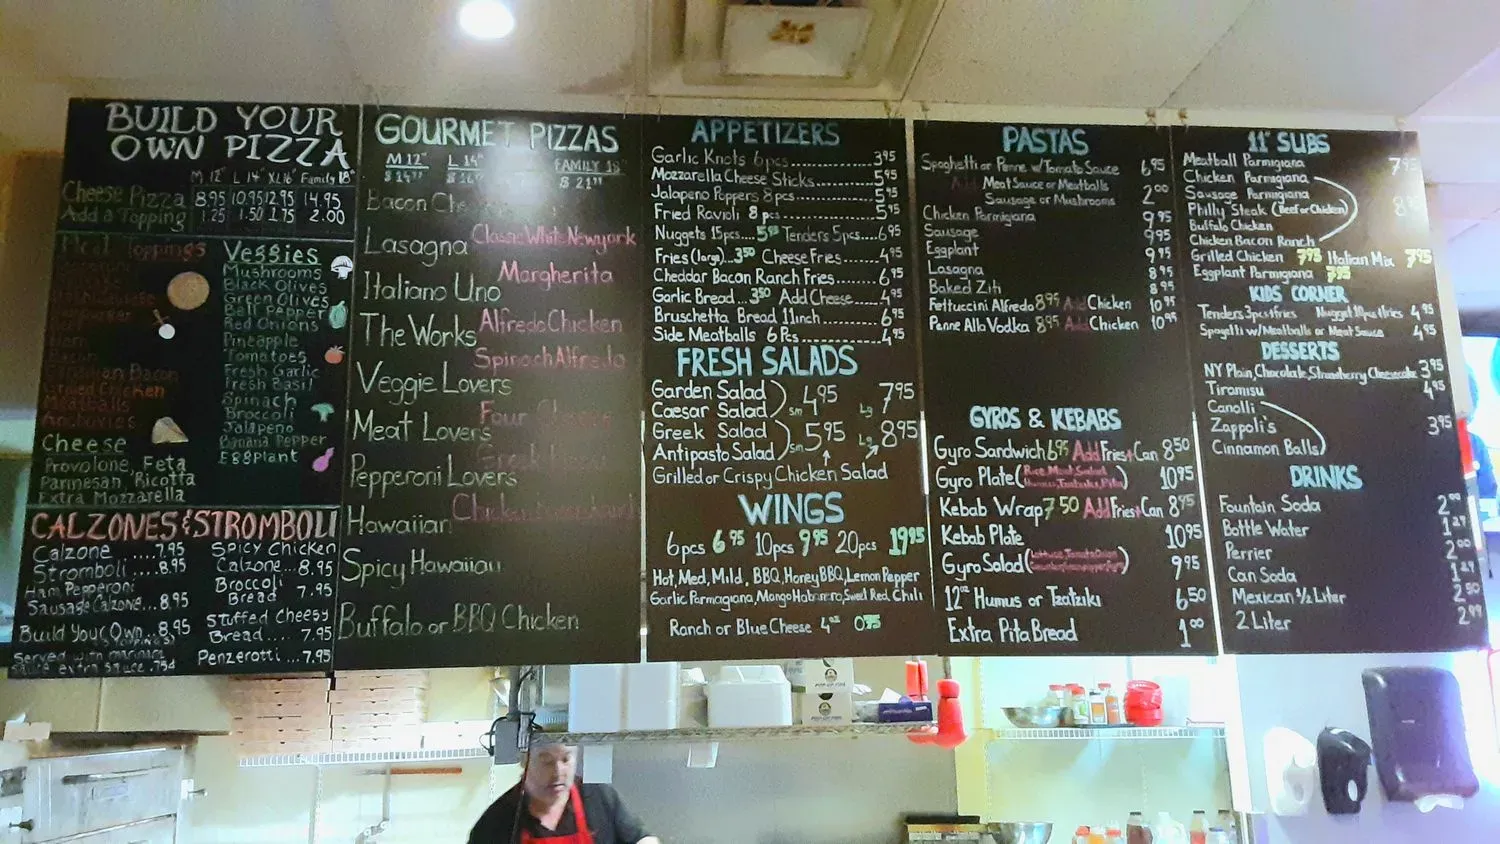 BUILD YOUR
OWN PIZZA
M 12" L 14" XL 16" Family 18"
Cheese Pizza 8.95 10.95 12.95 14.95
Add a Topping 1.25 1.50 1.75 2.00
Meat Toppings
Hamburger
Ham
Bacon
Canadian Bacon
Grilled Chicken
Meatballs
Anchovies
Cheese
Provolone, Feta
Parmesan, Ricotta
Extra Mozzarella
Veggies
Mushrooms
Black Olives
Green Olives
Bell Pepper
Red Onions
Pineapple
Tomatoes
Fresh Garlic
Fresh Basil
Spinach
Broccoli
Jalapeno
Banana Pepper
Eggplant
CALZONES & STROMBOLI
Calzone .....7.95
Stromboli ....8.95
Ham Pepperoni
Sausage Calzone...8.95
Build Your Own...8.95
Served with marinara
sauce extra sauce .75¢
Spicy Chicken
Calzone...8.95
Broccoli
Bread 7.95
Stuffed Cheesy
Bread.... 7.95
Penzerotti ...7.95
GOURMET PIZZAS
M 12" L 14" FAMILY 18"
$ 21
Bacon
Lasagna
Classic White Newyork
Margherita
Italiano Uno
The Works
Alfredo Chicken
Spinach Alfredo
Veggie Lovers
Four Cheese
Meat Lovers
Pepperoni Lovers
Hawaiian
Chicken
Spicy Hawaiian
Buffalo or BBQ Chicken
APPETIZERS
Garlic Knots 6pcs 3.95
Mozzarella Cheese Sticks 5.95
Jalapeno Poppers 8pcs 5.95
Fried Ravioli 8pcs 5.95
Nuggets 15pcs....5.95 Tenders 5pcs....6.95
Fries (large)..3.50 Cheese Fries 4.95
Cheddar Bacon Ranch Fries 6.95
Garlic Bread...3.50 Add Cheese 4.95
Bruschetta Bread 11inch 6.95
Side Meatballs 6 Pcs 4.95
FRESH SALADS
Garden Salad
Caesar Salad
sm 4.95 Lg 7.95
Greek Salad
Antipasto Salad
sm 5.95 Lg 8.95
Grilled or Crispy Chicken Salad
WINGS
6pcs 6.95 10pcs 9.95 20pcs 19.95
Hot, Med, Mild, BBQ, Honey BBQ, Lemon Pepper
Garlic Parmagiana, Mango Habanero, Sweet Red Chili
Ranch or Blue Cheese 4oz 0.75
PASTAS
Spaghetti or Penne w/Tomato Sauce 6.95
Add Meat Sauce or Meatballs
Sausage or Mushrooms 2.00
Chicken Parmigiana 9.95
Sausage 9.95
Eggplant 9.95
Lasagna 8.95
Baked Ziti 8.95
Fettuccini Alfredo 8.95 Add Chicken 10.95
Penne Alla Vodka 8.95 Add Chicken 10.95
GYROS & KEBABS
Gyro Sandwich 6.95 Add Fries+Can 8.50
Gyro Plate (Rice, Meat, Salad, Hummus, Tzatziki, Pita) 10.95
Kebab Wrap 7.50 Add Fries+Can 8.95
Kebab Plate 10.95
Gyro Salad 9.95
12oz Humus or Tzatziki 6.50
Extra Pita Bread 1.00
11" SUBS
Meatball Parmigiana 7.95
Chicken Parmigiana
Sausage Parmigiana
Philly Steak (Beef or Chicken)
Buffalo Chicken
Chicken Bacon Ranch
Grilled Chicken 7.95 Italian Mix 7.95
Eggplant Parmigiana 7.95
KIDS CORNER
Tenders 3pcs+fries Nugget 10pcs+fries 4.95
Spagetti w/Meatballs or Meat Sauce 4.95
DESSERTS
NY Plain, Chocolate, Strawberry Cheesecake 3.95
Tiramisu 4.95
Canolli
Zappoli's
Cinnamon Balls
3.95
DRINKS
Fountain Soda 2.00
Bottle Water 1.29
Perrier 2.00
Can Soda 1.29
Mexican 1/2 Liter 2.50
2 Liter 2.99